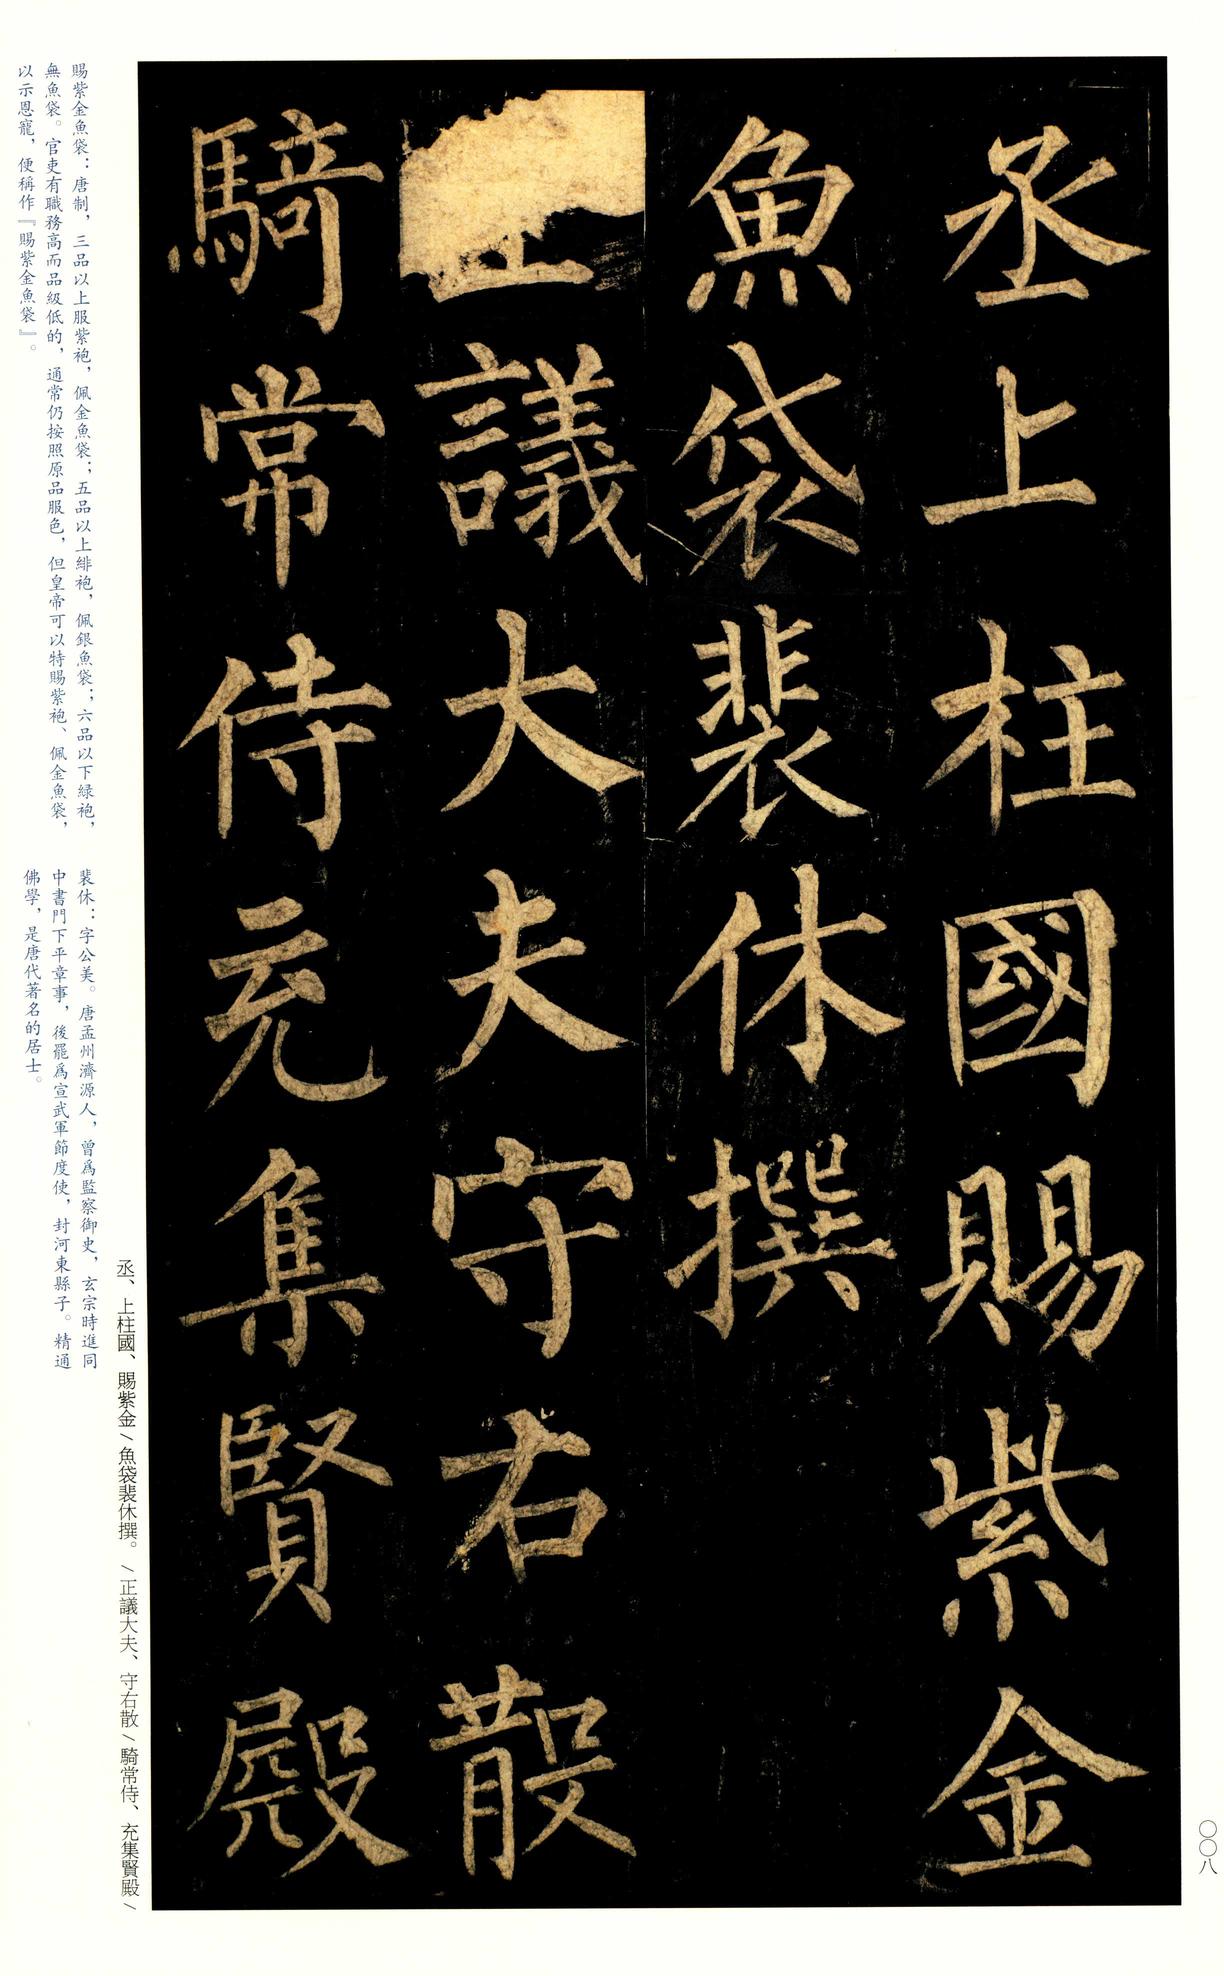 丞上柱國賜紫金
魚袋裴休撰
正議大夫守右散
騎常侍充集賢殿
丞、上柱國、賜紫金\魚袋裴休撰。\正議大夫、守右散\騎常侍、充集賢殿\
賜紫金魚袋：唐制，三品以上服紫袍，佩金魚袋；五品以上緋袍，佩銀魚袋；六品以下緑袍，
無魚袋。官吏有職務高而品級低的，通常仍按照原品服色，但皇帝可以特賜紫袍、佩金魚袋，
以示恩寵，便稱作『賜紫金魚袋』。
裴休：字公美。唐孟州濟源人，曾爲監察御史，玄宗時進同
中書門下平章事，後罷爲宣武軍節度使，封河東縣子。精通
佛學，是唐代著名的居士。
〇〇八